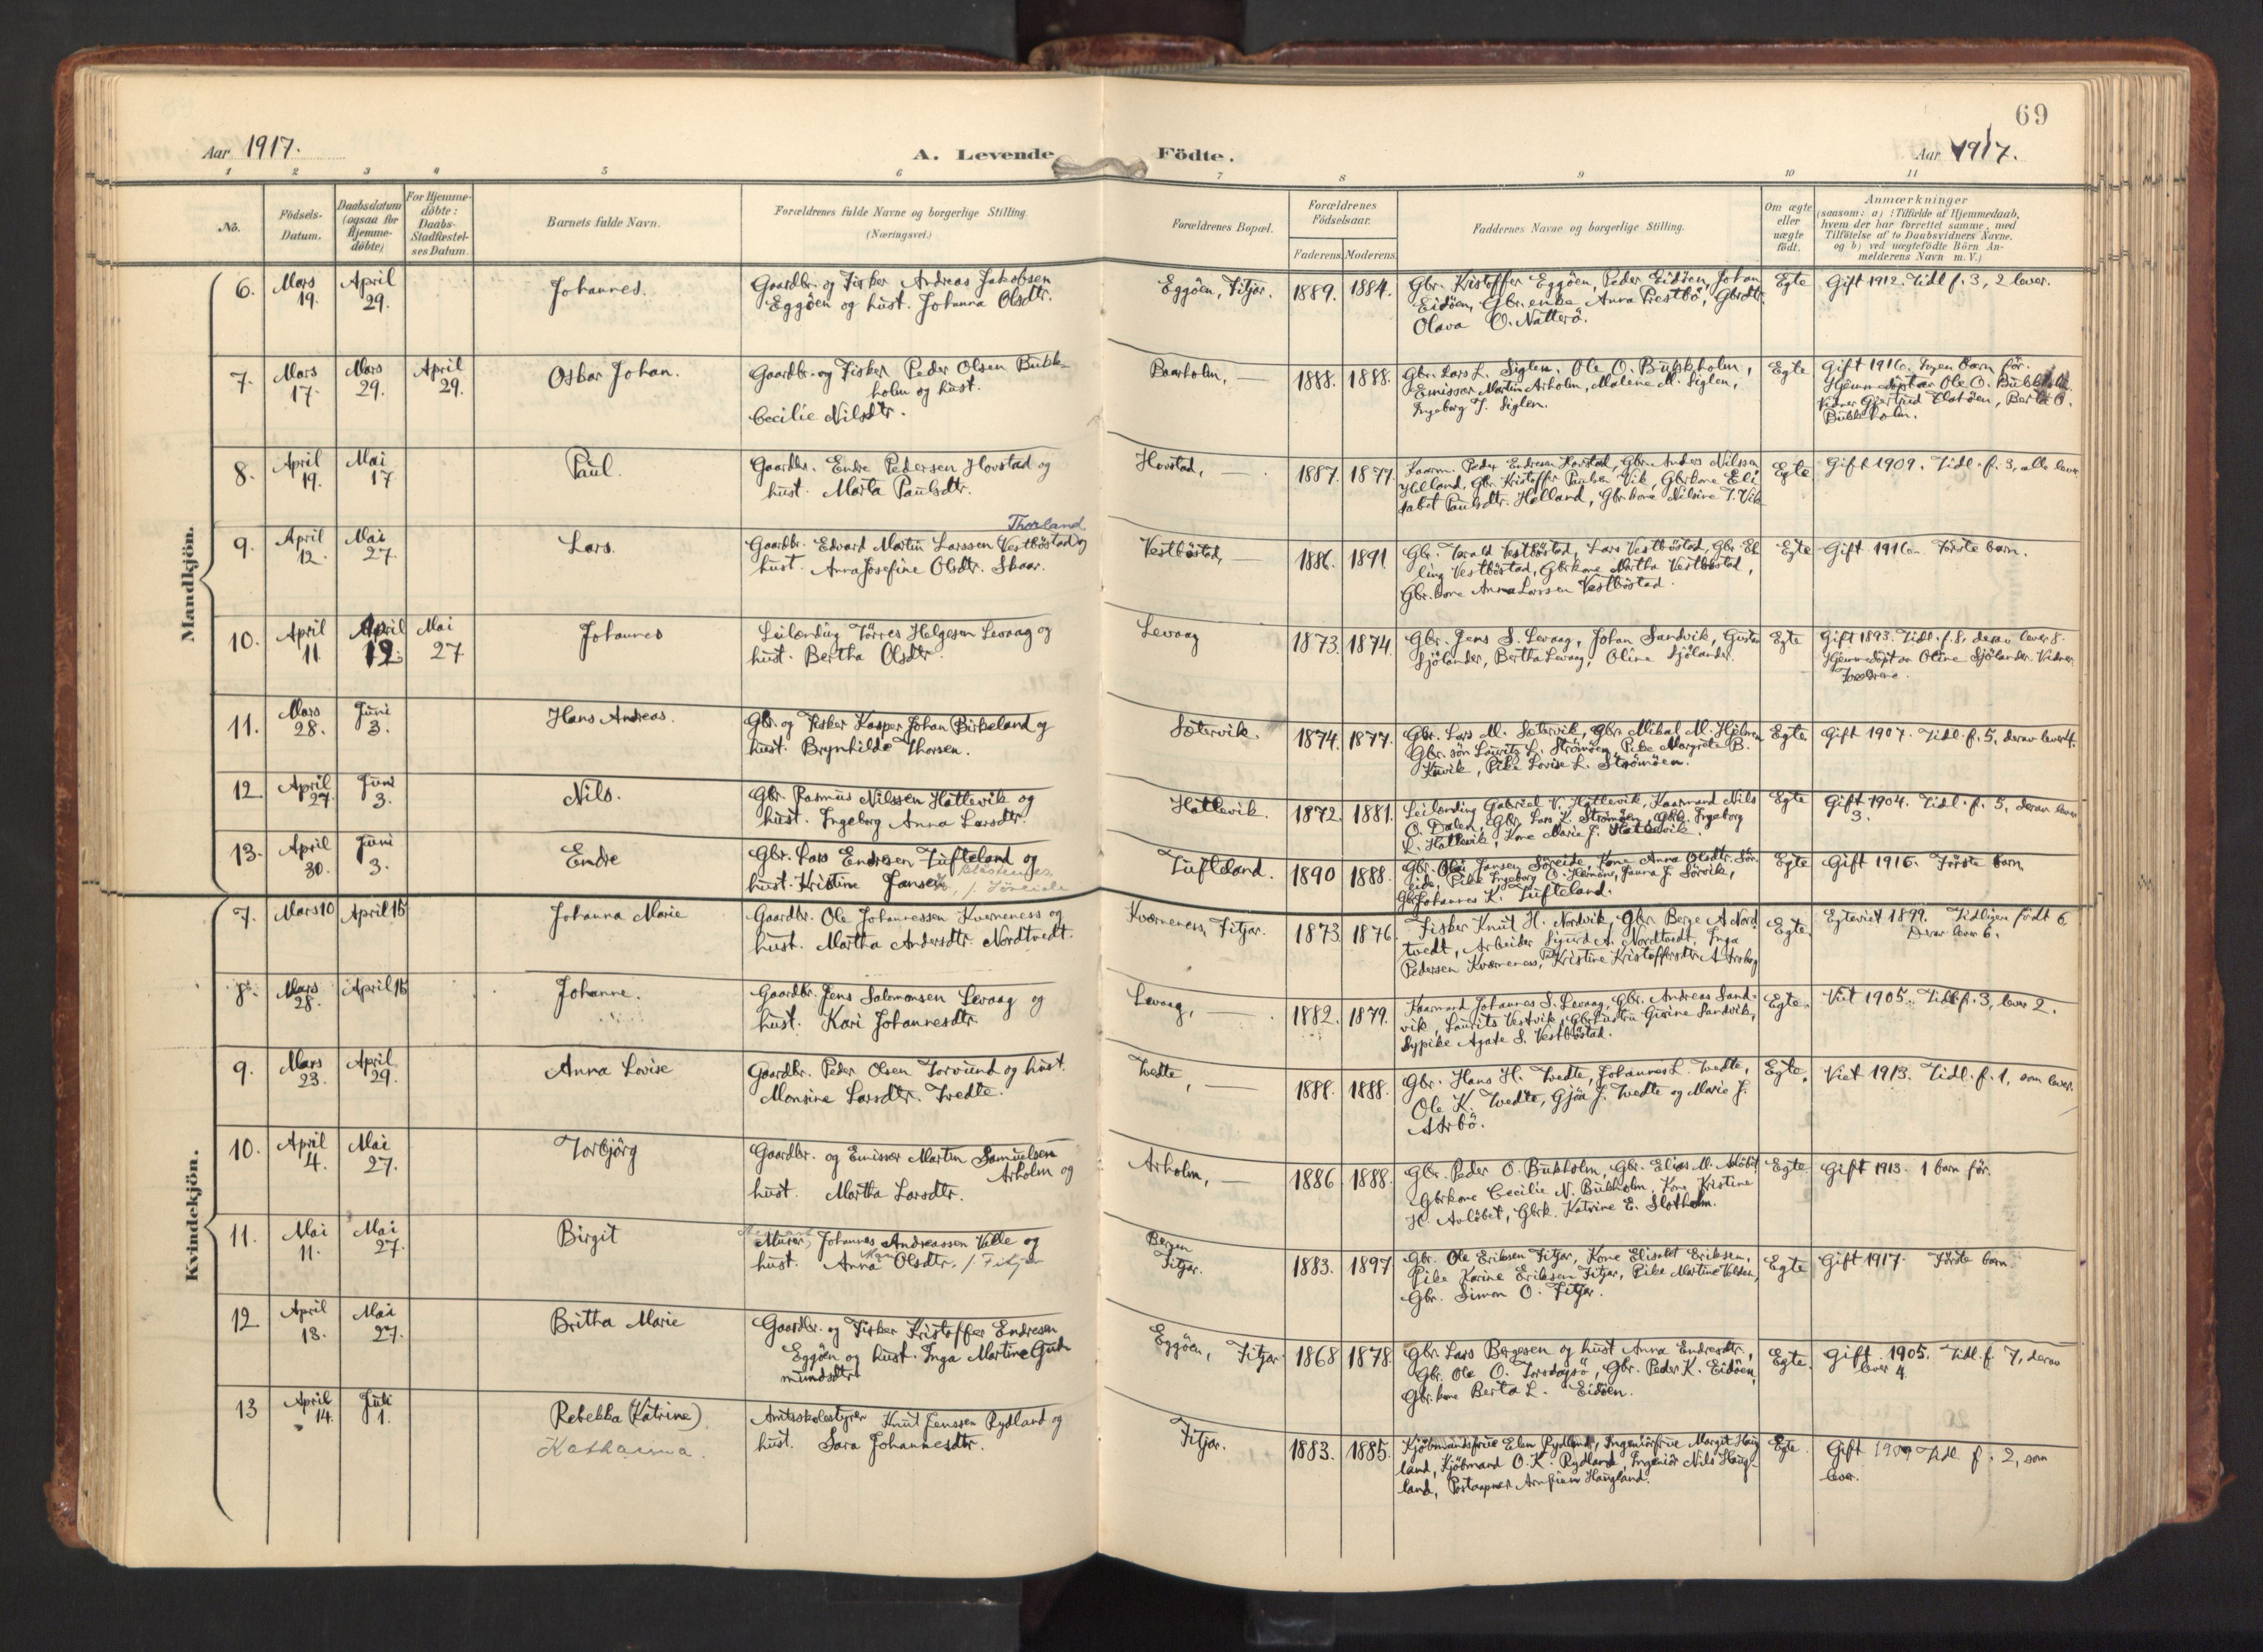 69
Aar 1917.
A. Levende Födte.
Aar 1917.
1 2 3 4 5 6 7 8 9 10 11
No.
Födsels-
Datum.
Daabsdatum
(ogsaa for
Hjemme-
döbte)
For Hjemme-
döbte:
Daabs-
Stadfæstel-
ses Datum.
Barnets fulde Navn.
Forældrenes fulde Navne og borgerlige Stilling.
(Næringsvei.)
Forældrenes Bopæl.
Forældrenes
Födselsaar.
Faderens Moderens
Faddernes Navne og borgerlige Stilling.
Om ægte
eller
uægte
födt.
Anmærkninger
(saasom: a) i Tilfælde af Hjemmedaab,
hvem der har forrettet samme, med
Tilföielse af to Daabsvidners Navne.
og b) ved uægtefödte Börn An-
melderens Navn m. V.)
Mandkjön.
6. Mars 19. April 29. Johannes.
Gaardbr. og Fisker Andreas Jakobsen
Eggöen og hust. Johanna Olsdtr.
Eggöen, Fitjar. 1889. 1884.
Gbr. Kristoffer Eggöen, Peder Eidöen, Johan
Eidöen, Gbr. enke Anna Prestbö, Gbrdtr.
Olava O. Natterö.
Egte Gift 1912. Tidl f. 3, 2 lever.
7. Mars 17. Mars 29. April 29. Oskar Johan.
Gaardbr. og Fisker Peder Olsen Bukk-
holm og hust.
Cecilie Nilsdtr.
Baarholm, — 1888. 1888.
Gbr. Lars L. Siglen, Ole O. Bukkholm,
Emissær Martin Arholm, Malene M. Siglen,
Ingeborg J. Siglen.
Egte Gift 1916. Ingen barn för.
Hjemmedöpt av Ole O. Bukkholm.
Vidner Gjertrud Flatöen, Berta O.
Bukkholm.
8. April 19. Mai 17 Paul.
Gaardbr. Endre Pedersen Hovstad og
hust. Marta Paulsdtr.
Hovstad, — 1887. 1877.
Kaarm. Peder Endresen Hovstad, Gbr. Anders Nilssen
Helland, Gbr. Kristoffer Paulsen Vik, Gbrkone Eli
sabet Paulsdtr. Helland, Gbrkone Nilsine T. Vik
Egte Gift 1909. Tidl. f. 3, alle lever
9. April 12. Mai 27. Lars.
Thorland
Gaardbr. Edvard Martin Larssen (Vestböstad og
hust. Anna Josefine Olsdtr. Skaar.
Vestböstad, — 1886. 1891
Gbr. Harald Vestböstad, Lars Vestböstad, Gbr. El
ling Vestböstad, Gbrkone Martha Vestböstad,
Gbr. kone Anna Larssen Vestböstad.
Egte Gift 1916. Förste barn.
10. April 11 April 12. Mai 27 Johannes
Leilænding Törres Helgesen Levaag og
hust. Bertha Olsdtr.
Levaag 1873. 1874.
Gbr. Jens S. Levaag, Johan Sandvik, Gustav
Sjölander, Bertha Levaag, Oline Sjölander.
Egte Gift 1893. Tidl. f. 8, derav lever 8.
Hjemmedöpt av Oline Sjölander. Vidner
Forældrene.
11. Mars 28. Juni 3. Hans Andreas.
Gbr. og Fisker Kasper Johan Birkeland og
hust. Brynhilde Thorsen.
Sætervik. 1874. 1877.
Gbr. Lars M. Sætervik, Gbr. Mikal M.
Gbr. sön Laurits L. Strömöen, Pike Margrete B.
Pike Lovise L. Strömöen.
Egte Gift 1907. Tidl. f. 5, derav lever 4.
12. April 27. Juni 3. Nils.
Gbr. Rasmus Nilssen Hatlevik og
hust. Ingeborg Anna Larsdtr.
Hatlevik. 1872. 1881.
Leilænding Gabriel V. Hatlevik, Kaarmand Nils
O. Dalen, Gbr. Lars K. Strömöen, Gbk. Ingeborg
L. Hatlevik, Kone Marie J. Hatlevik
Egte Gift 1904. Tidl. f. 5, derav lever
3.
13. April 30. Juni 3. Endre
Gbr. Lars Endresen Tufteland og
hust. Kristine Jansen,
Tufteland. 1890 1888.
Gbr. Olai Jansen Söreide, Kone Anna Olsdtr. Sör-
eide, Pike Ingeborg O. Janna J. Sörvik,
Gbr. Johannes K. Tufteland.
Egte Gift 1916. Förste barn
Kvindekjön.
7. Mars 10 April 15 Johanna Marie
Gaardbr. Ole Johannessen Kverneness og
hust. Martha Andersdtr. Nordtvedt.
Kværneness, Fitjar. 1873 1876.
Fisker Knut H. Nordvik, Gbr. Berge A. Nord
tvedt, Arbeider Sigurd A. Nordtvedt, Inga
Pedersen Kværneness, Pike Kristine Kristoffersdtr.
Egte. Egteviet 1899. Tidligere födt 6
Derav lever 6.
8. Mars 28. April 15 Johanne.
Gaardbr. Jens Salomonsen Levaag og
hust. Kari Johannesdtr.
Levaag, — 1882. 1879.
Kaarmand Johannes S. Levaag, Gbr. Andreas Sand-
vik, Laurits Vestvik, Gbr. hustru Gurine Sandvik,
Sypike Agate S. Vestböstad.
Egte. Viet 1905. Tidl. f. 3, lever 2.
9. Mars 23. April 29. Anna Lovise
Gaardbr. Peder Olsen Torvund og hust.
Monsine Larsdtr. Tvedte.
Tvedte, — 1888. 1888.
Gbr. Hans H. Tvedte, Johannes L. Tvedte,
Ole K. Tvedte, Gjöa J. Tvedte og Marie J.
Aarbö.
Egte. Viet 1913. Tidl. f. 1, som lever.
10. April 4. Mai 27. Torbjörg
Gaardbr. og Emissær Martin Samuelsen
Arholm og
hust. Martha Larsdtr.
Arholm, — 1886. 1888.
Gbr. Peder O. Bukholm, Gbr. Elias M. Avlöbet
Gbrkone Cecilie N. Bukholm, Kone Kristine
H. Avlöbet, Gbrk. Katrine E. Slotholm.
Egte. Gift 1913. 1 barn för.
11. Mai 11. Mai 27. Birgit
Murer, Johannes Andreassen Valle og
hust. Anna Olsdtr. f. Fitjar
Bergen
Fitjar. 1883. 1897
Gbr. Ole Eriksen Fitjar, Kone Elisabet Eriksen,
Pike Karine Eriksen Fitjar, Pike Martine
Gbr. Simon O. Fitjar.
Egte Gift 1917. Förste barn.
12 April 18. Mai 27. Britha Marie
Gaardbr. og Fisker Kristoffer Endresen
Eggöen og hust. Inga Martine Gud
mundsdtr
Eggöen, Fitjar 1868 1878.
Gbr. Lars Borgesen og hust Anna Endresdtr.,
Gbr. Ole O. Gbr. Peder K. Eidöen,
Gbr. kone Berta L. Eidöen.
Egte. Gift 1905. Tidl. f 7, derav
lever 4
13 April 14. Juli 1. Rebekka (Katrine)
Katharina.
Amtsskolestyrer Knut Jenssen Rydland og
hust. Sara Johannesdtr.
Fitjar. 1883. 1885.
Kjöbmandsfrue Elen Rydland, Ingeniörfrue Margit Haug
land, Kjöbmand O. K. Rydland, Ingeniör Nils Haug-
land, Postaapner Arnfinn Haugland.
Egte. Gift 1909 Tidl f. 2, som
lever.